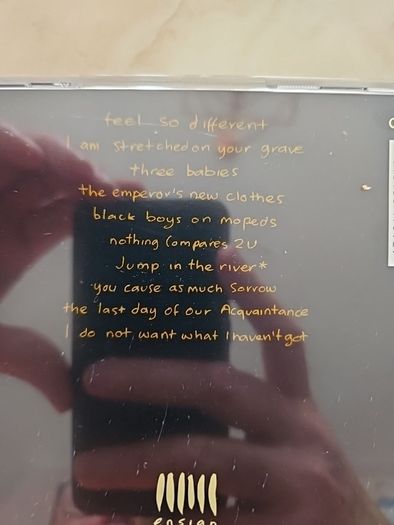 feel so different
I am stretched on your grave
three babies
the emperor's new clothes
black boys on mopeds
nothing Compares 2U
Jump in the river*
you cause as much Sorrow
the last day of our Acquaintance
I do not want what I haven't got
ensign